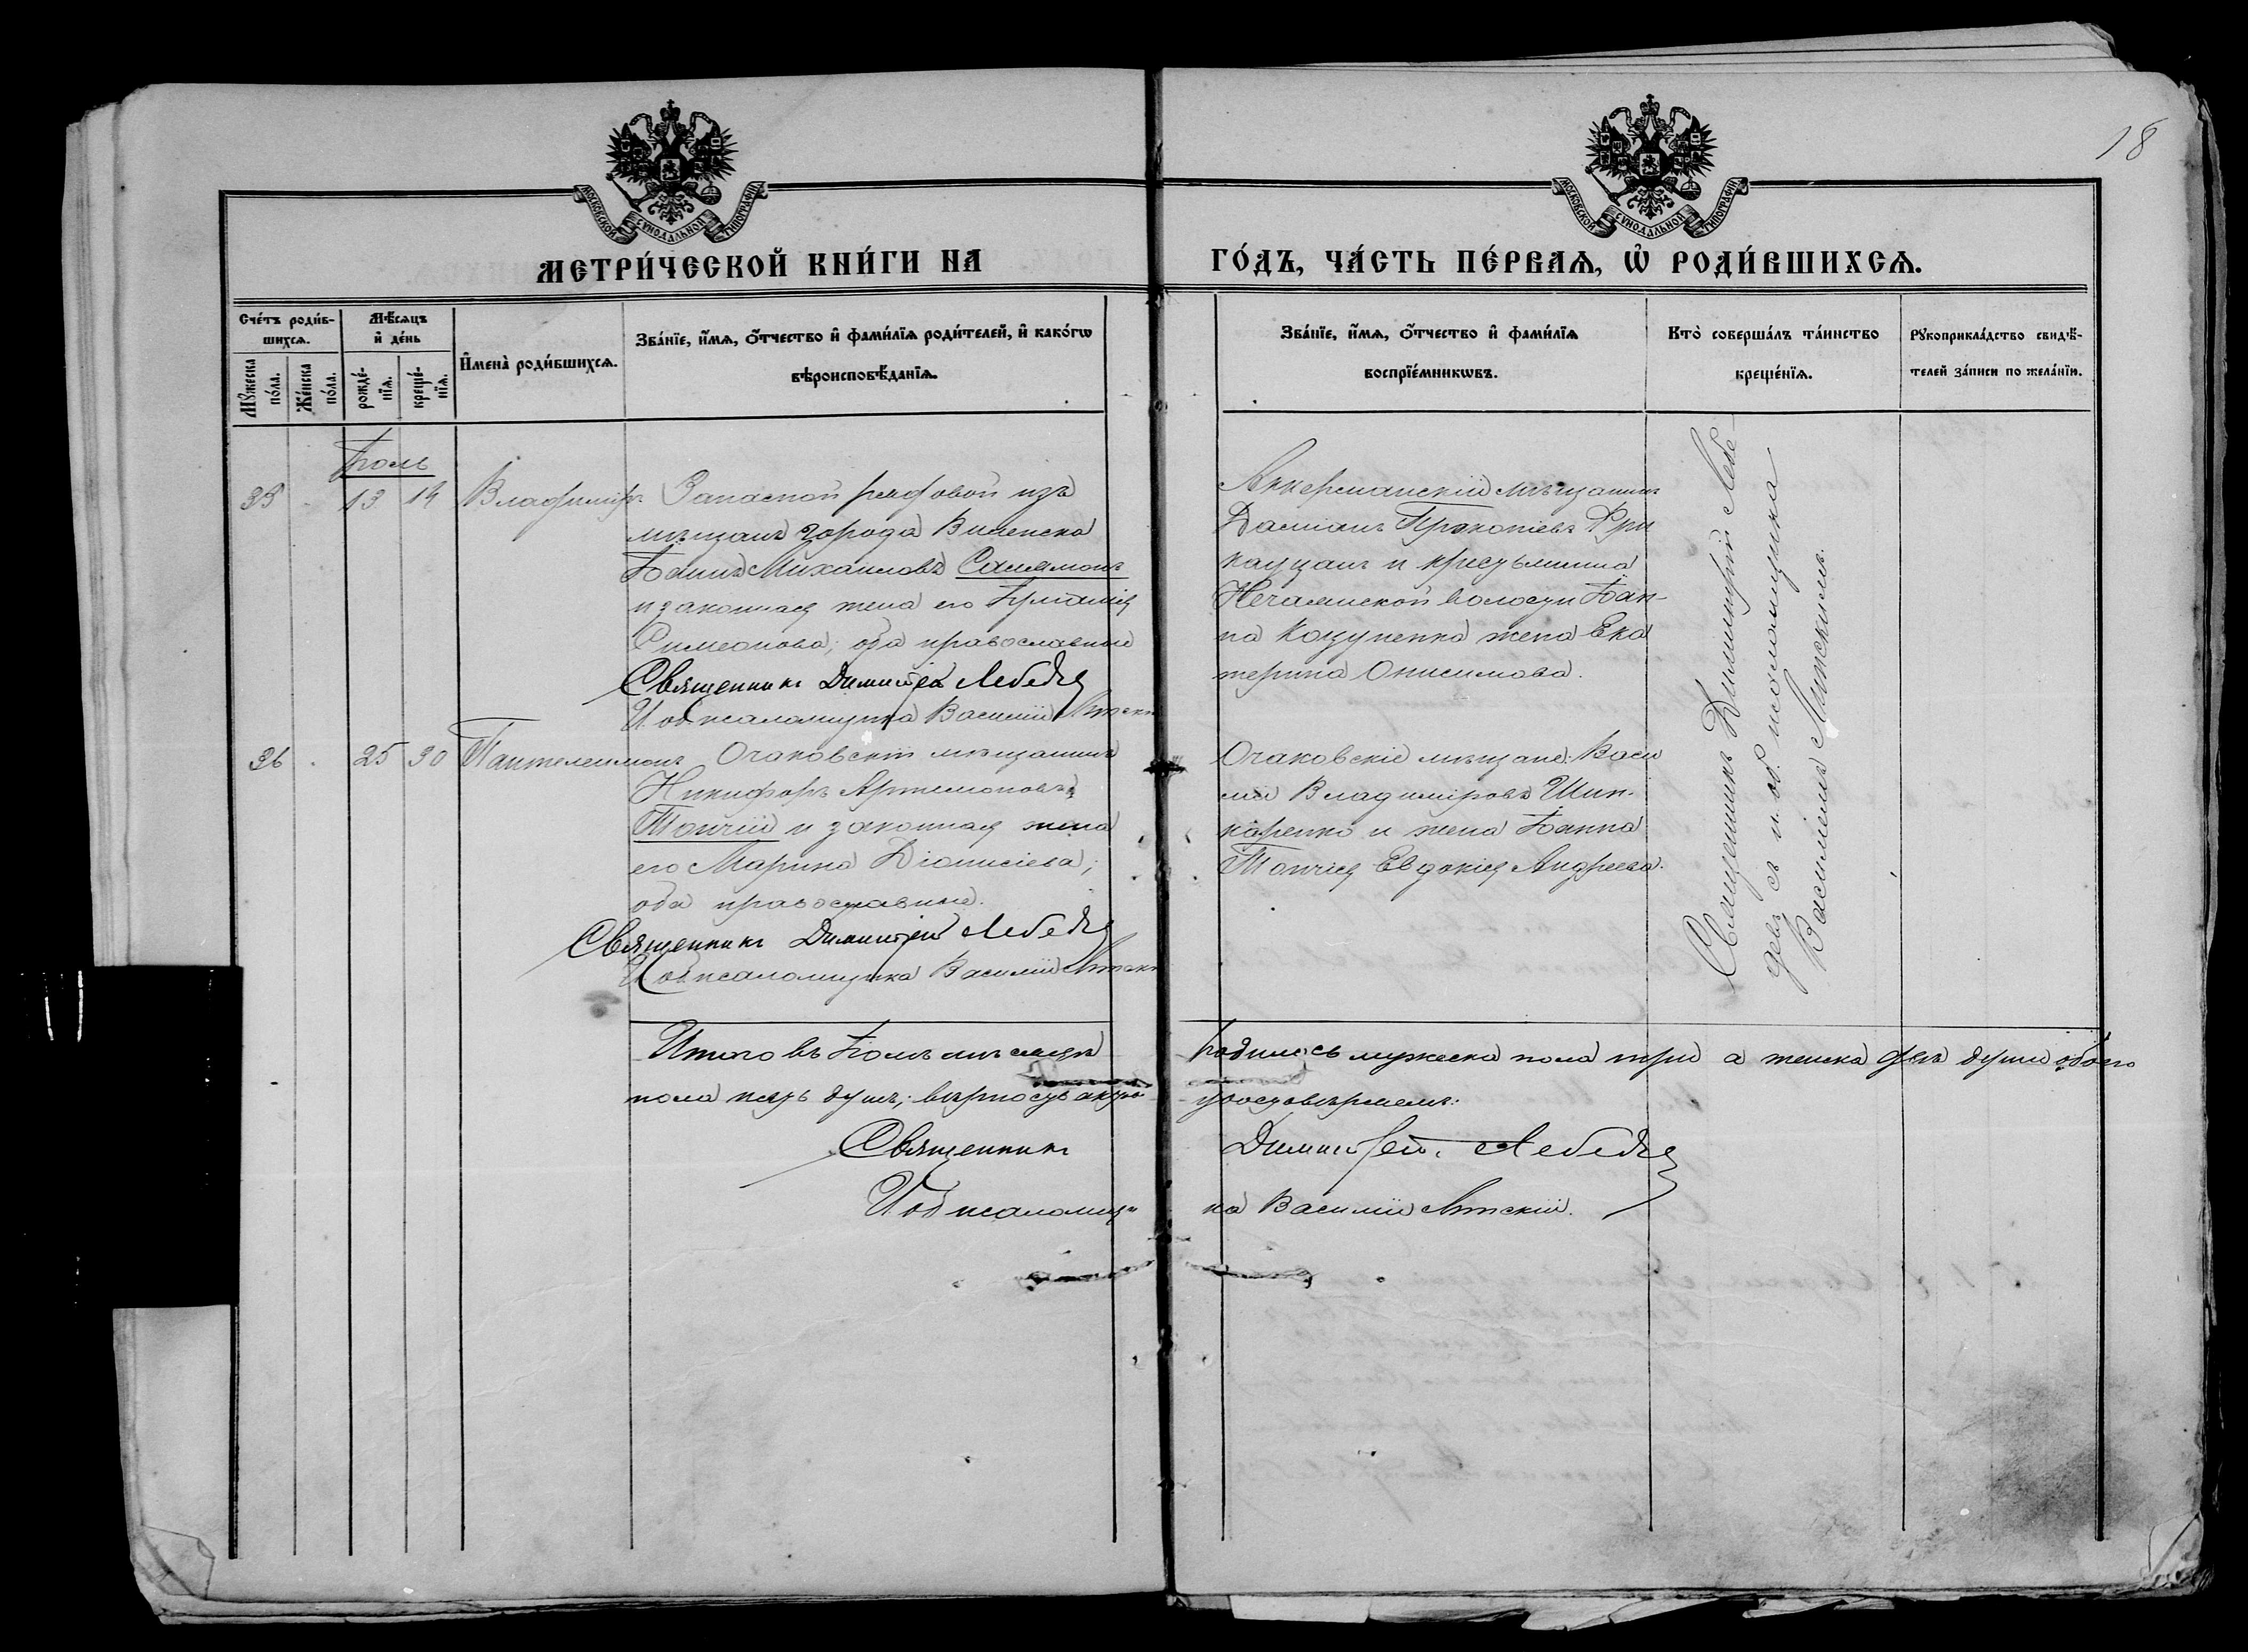 18
МОСКОВСКОЙ СѴНОДАЛЬНОЙ ТИПОГРАФІИ
МОСКОВСКОЙ СѴНОДАЛЬНОЙ ТИПОГРАФІИ
МЕТРИ́ЧЕСКОЙ КНИ́ГИ НА
ГО́ДЪ, ЧА́СТЬ ПЕ́РВАѦ, Ѡ҆ РОДИ́ВШИХСѦ.
Сче́тъ роди́в-
шихсѧ.
Мѣ́сѧцъ
и҆ де́нь
Мꙋ́жеска
по́ла.
Же́нска
по́ла.
рожде́-
нїѧ.
креще́-
нїѧ.
И҆мена̀ роди́вшихсѧ.
Зва́нїе, и҆́мѧ, ѻ҆́тчество и҆ фами́лїѧ роди́телей, и҆ како́гѡ
вѣроисповѣ́данїѧ.
Зва́нїе, и҆́мѧ, ѻ҆́тчество и҆ фами́лїѧ
воспрїе́мникѡвъ.
Кто̀ соверша́лъ та́инство
креще́нїѧ.
Рꙋкоприкла́дство свидѣ́-
телей за́писи по жела́нїю.
Іюль
35 13 14 Владиміръ
Запасной рядовой изъ
мѣщанъ города
Іоаннъ Михаиловъ
и законная жена его Іуліанія
Симеонова; оба православные
Священникъ Димитрій Лебедевъ
И об псаломщика Василій
Аккерманскій мѣщанинъ
Даміанъ Прокопіевъ
и крестьянина
волости Іоан-
на Коцупенка жена Ека
терина Онисимова.
Священникъ Димитрій Лебе-
девъ съ и. об. псаломщика
Василіемъ
36 25 30 Пантелеимонъ
Очаковскій мѣщанинъ
Никифоръ Артемоновъ
Топчій и законная жена
его Марина Діонисіева;
оба православные.
Священникъ Димитрій Лебедевъ
И об псаломщика Василій
Очаковскіе мѣщане: Васи
лій Владиміровъ Шин-
каренко и жена Іоанна
Топчія Евдокія Андреева.
Итого въ Іюлѣ мѣсяцѣ родилось мужеска пола три а женска двѣ души обоего
пола пять душъ; вѣрность актовъ удостовѣряемъ:
Священникъ Димитрій Лебедевъ
И об псаломщи ка Василій